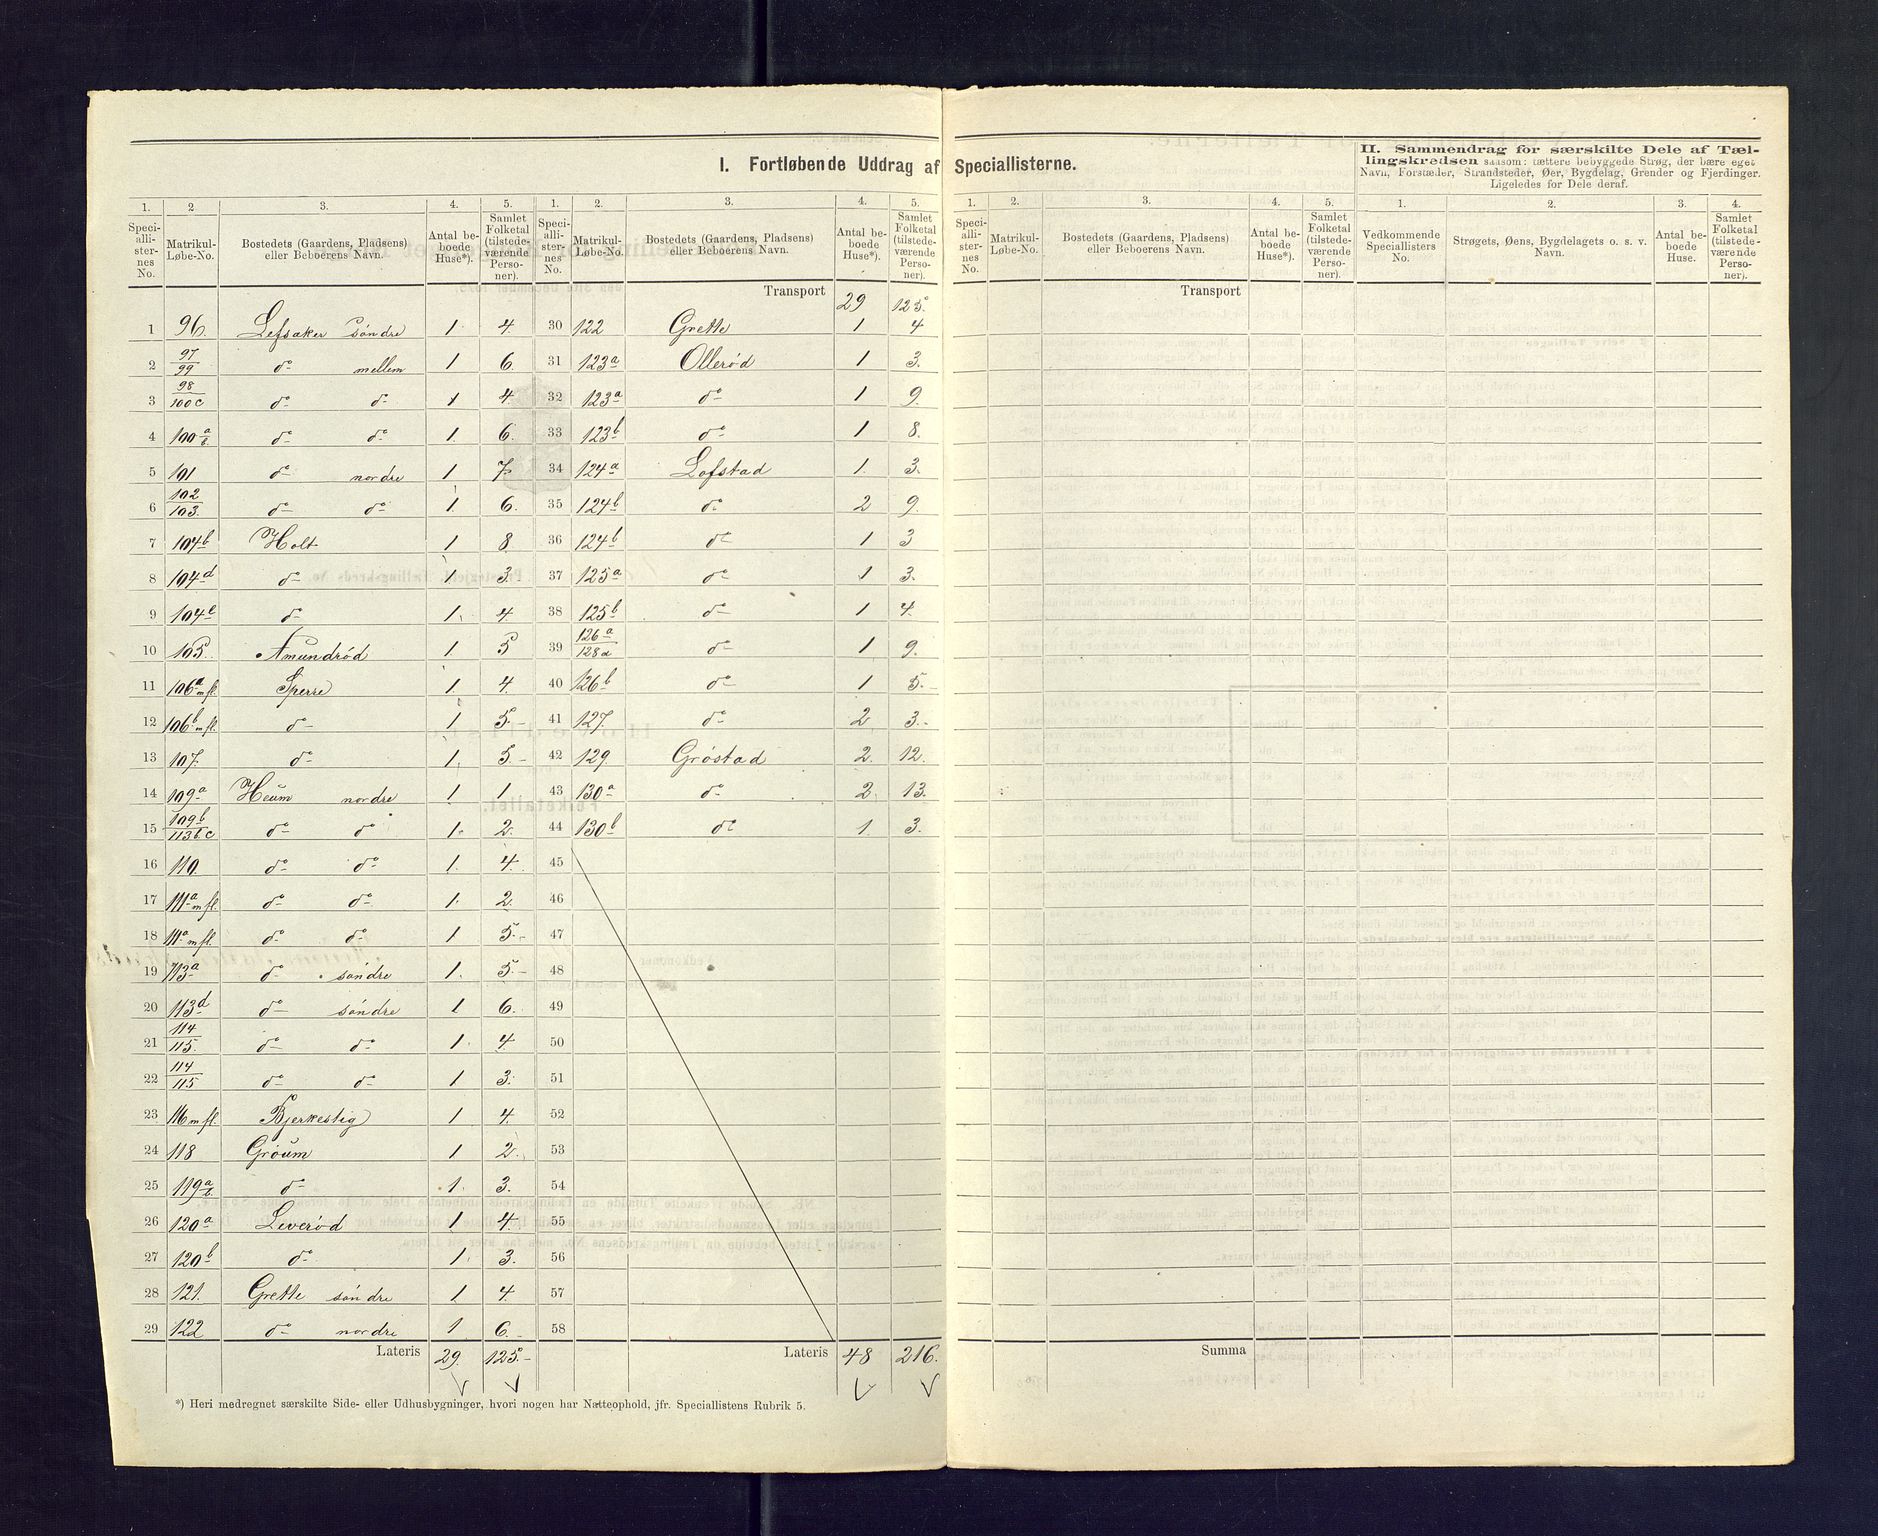 I. Fortløbende Uddrag af Speciallisterne.
II. Sammendrag for særskilte Dele af Tæl-
lingskredsen saasom: tættere bebyggede Strøg, der bære eget
Navn, Forstæder, Strandsteder, Øer, Bygdelag, Grender og Fjerdinger.
Ligeledes for Dele deraf.
1. 2 3. 4. 5. 1. 2. 3. 4. 5. 1. 2. 3. 4. 5. 1. 2. 3. 4.
Speci-alli-ster-nes No. Matrikul-Løbe-No. Bostedets (Gaardens, Pladsens) eller Beboerens Navn. Antal be-boede Huse*). Samlet Folketal (tilstede-værende Perso-ner).
Speci-alli-ster-nes No. Matrikul-Løbe-No. Bostedets (Gaardens, Pladsens) eller Beboerens Navn. Antal be-boede Huse*). Samlet Folketal (tilstede-værende Perso-ner).
Speci-alli-ster-nes No. Matrikul-Løbe-No. Bostedets (Gaardens, Pladsens) eller Beboerens Navn. Antal be-boede Huse*). Samlet Folketal (tilstede-værende Perso-ner).
Vedkommende Speciallisters No. Strøgets, Øens, Bygdelagets o. s. v. Navn. Antal be-boede Huse. Samlet Folketal (tilstede-værende Perso-ner).
Transport 29 125. Transport
1 96. Lefsaker søndre 1. 4. 30 122 Grette 1 4
2 97/99 do mellem 1 6. 31 123a Ollerød 1 3.
3 98/100c do do 1 4. 32 123a do 1 9.
4 100a/b. do do 1. 6. 33 123b do 1 8.
5 101 do nordre 1 7. 34 124a Lofstad 1. 3.
6 102/103. do do 1. 6. 35 124b do 2 9.
7 104b Holt 1 8. 36 124b do 1 3
8 104d do 1. 3. 37 125a do 1 3.
9 104e do 1. 4. 38 125b do 1 4.
10 105. Amundrød 1. 5 39 126a/128a do 1. 9.
11 106a m fl. Sperre 1 4. 40 126b do 1 5.-
12 106b m fl. do 1 5.- 41 127. do 2 3.-
13 107. do 1. 5.- 42 129. Grøstad 2. 12.
14 109a Heum nordre 1 1 43 130a do 2. 13.
15 109b/113b.c do do 1. 2. 44 130b do 1. 3.
16 110. do do 1. 4. 45
17 111a m fl. do do 1. 2. 46
18 111a m fl. do do 1 5. 47
19 113a do søndre 1. 5.- 48
20 113d do søndre 1 6. 49
21 114/115. do do 1. 4. 50
22 114/115 do do 1 3. 51
23 116 m fl. Bjerkestig 1 4. 52
24 118 Grøum 1 2. 53
25 119a/b. do 1. 3. 54
26 120a Leverød 1 4. 55
27 120b do 1. 3. 56
28 121. Grette søndre 1 4. 57
29 122 do nordre 1 6.- 58
Lateris 29. 125.- Lateris 48 216. Summa
*) Heri medregnet særskilte Side- eller Udhusbygninger, hvori nogen har Natteophold, jfr. Speciallistens Rubrik 5.